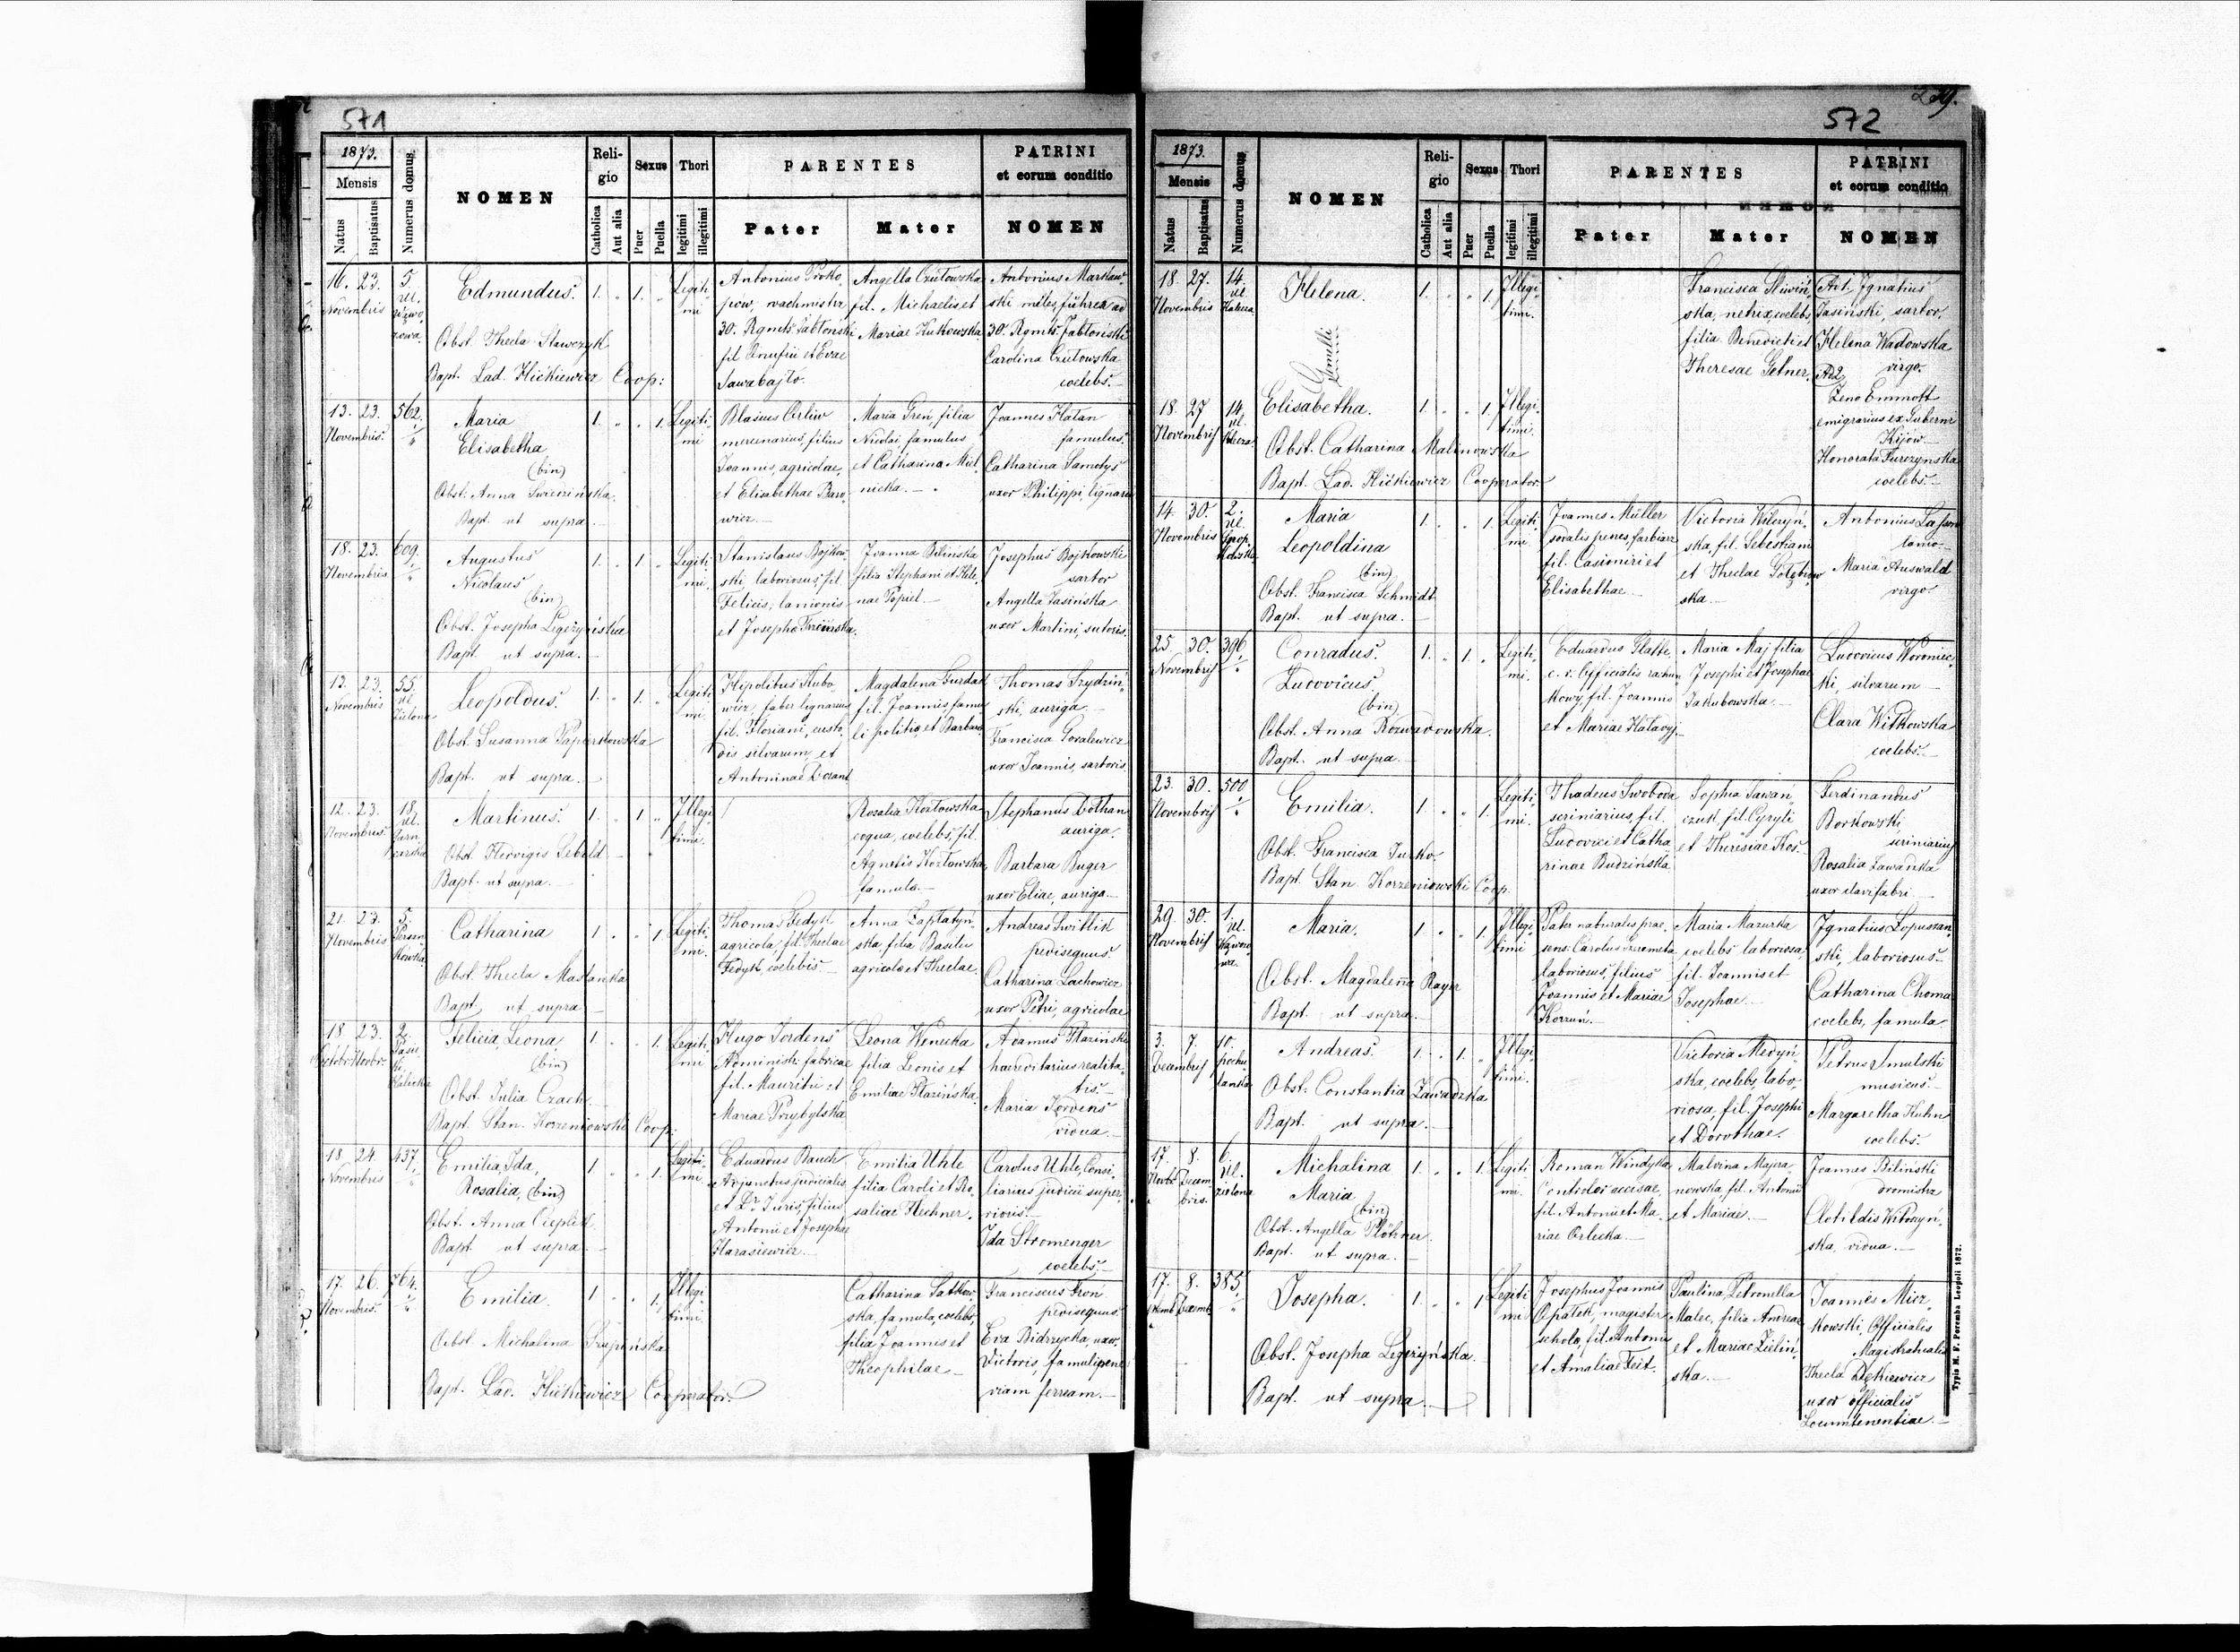 571
1873.
Mensis
Natus
Baptisatus
Numerus domus
NOMEN
Religio
Catholica
Aut alia
Sexus
Puer
Puella
Thori
legitimi
illegitimi
PARENTES
Pater
Mater
PATRINI
et eorum conditio
NOMEN
16. 23. 5.
Novembris ul.
Edmundus.
1. " 1. "
Legiti-
mi
Obst. Thecla Stawczyk
Bapt. Lad. Hićkiewicz Coop:
Antonius Proko-
pow, wachmistrz
30. Rgmts. Jabłonski
fil. Onufrii et Evae
Sawabajło.
Angella Czułowska
fil. Michaelis et
Mariae Kutkowska.
Antonius Markow-
ski miles, führer ad
30. Rgmts. Jabłoński
Carolina Czułowska
coelebs.
13. 23. 562.
Novembris.
Maria
Elisabetha
(bin)
1. " " 1.
Legiti-
mi
Obst. Anna Swierzińska.
Bapt. ut supra.
Blasius Orliw
mercenarius, filius
Joannis, agricolae,
et Elisabethae Baro-
wicz.
Maria Gren, filia
Nicolai, famulus
et Catharina Miel-
nicka.
Joannes Hatan
famulus.
Catharina Sametys
uxor Philippi, lignarii
18. 23. 609.
Novembris
Augustus
Nicolaus
(bin)
1. " 1. "
Legiti-
mi.
Obst. Josepha Ligęzyńska
Bapt. ut supra.
Stanislaus Bojkow-
ski laboriosus, fil.
Felicis, lanionis
et Josepha
Joanna Bilińska
filia Stephani et Hele-
nae Popiel.
Josephus Bojkowski
sartor
Angella Jasińska
uxor Martini, sutoris.
12. 23. 55.
Novembris ul.
Zielona
Leopoldus.
1. " 1. "
Legiti-
mi.
Obst. Susanna Paperkowska
Bapt. ut supra.
Hipolitus Kubo-
wicz, faber lignarius
fil. Floriani, custo-
dis silvarum, et
Antoninae
Magdalena Gurdak
fil. Joannis famu-
li politio, et Barbara
Thomas Szydzin-
ski, auriga.
Francisca Gowalewicz
uxor Joannis, sartoris.
12. 23. 18.
Novembris ul.
Martinus.
1. " 1. "
Illegi-
timi.
Obst. Hedvigis Sebald
Bapt. ut supra.
Rosalia Kozłowska
coqua, coelebs, fil.
Agnetis Kozłowska
famula.
Stephanus Bothan
auriga.
Barbara Buger
uxor Eliae, auriga.
21. 23. 5.
Novembris
Catharina
1. " " 1.
Legiti-
mi.
Obst. Thecla Maslanka
Bapt. ut supra
Thomas Fedyk
agricola, fil. Theclae
Fedyk coelebis
Anna Zaplatyn-
ska filia Basilii
agricolae et Theclae.
Andreas Switlik
pedisequus.
Catharina Lachowicz
uxor Petri, agricolae
18 23 2.
Octobr. Novbr.
Felicia, Leona
(bin)
1. " " 1.
Legiti-
mi
Obst. Julia Czach
Bapt. Stan. Korzeniowski Coop:
Hugo Jordens
Administr. fabricae
fil. Mauritii et
Mariae Przybylska
Leona Winecka
filia Leonis et
Emiliae Płazińska.
Adamus Płaziński
haereditarius realita-
tis.
Maria Jordens
vidua
18 24. 437.
Novembris
Emilia, Ida,
Rosalia, (bin)
1. " " 1.
Legiti-
mi
Obst. Anna Cieplik
Bapt. ut supra
Eduardus Bauch
Adjunctus judicialis
et Dr. Juris, filius
Antonii et Josephae
Harasiewicz.
Emilia Uhle
filia Caroli et Ro-
saliae Hechner.
Carolus Uhle, Consi-
liarius judicii super-
rioris.
Ida Stromenger
coelebs.
17. 26. 764.
Novembris.
Emilia.
1 " " 1.
Illegi-
timi.
Obst. Michalina Krupińska
Bapt. Lad. Hićkiewicz Cooperator.
Catharina Satkow-
ska, famula, coelebs,
filia Joannis et
Theophilae
Franciscus Fron
pedisequus.
Eva Bidrzycka, uxor
Victoris, famuli pene
viam ferream.
572
1873.
Mensis
Natus
Baptisatus
Numerus domus
NOMEN
Religio
Catholica
Aut alia
Sexus
Puer
Puella
Thori
legitimi
illegitimi
PARENTES
Pater
Mater
PATRINI
et eorum conditio
NOMEN
18. 27. 14.
Novembris ul.
Helena.
Gemelli
1. " " 1.
Illegi-
timi.
Francisca Sliwiń-
ska, netrix, coelebs,
filia Benedicti et
Theresae Setner.
Ad 1. Ignatius
Jasiński, sartor,
Helena Wadowska
virgo.
18. 27 14.
Novembris ul.
Elisabetha.
1. " " 1.
Illegi-
timi.
Obst. Catharina Malinowska
Bapt. Lad. Hićkiewicz Cooperator
Ad 2.
Zeno Emmott
emigrarius ex Gubern.
Kijow
Honorata Turczynska
coelebs.
14. 30. 2.
Novembris ul.
Maria
Leopoldina
(bin)
1. " " 1.
Legiti-
mi.
Obst. Francisca Schmidt
Bapt. ut supra.
Joannes Müller
sodalis penes farbiarz
fil. Casimiri et
Elisabethae
Victoria Wilczyń-
ska, fil. Sebestiani
et Theclae Gołębiow-
ska.
Antonius
lanio
Maria Auswald
virgo.
25 30. 396.
Novembris
Conradus.
Ludovicus.
(bin)
1. " 1. "
Legiti-
mi.
Obst. Anna Rozwadowska.
Bapt. ut supra.
Eduardus Platte,
c. r. Officialis rachun-
kowy, fil. Joannis
et Mariae
Maria Maj filia
Josephi et Josephae
Jakubowska.
Ludovicus Woroniec-
ki, silvarum
Clara Witkowska
coelebs.
23. 30. 500
Novembris
Emilia.
1. " " 1.
Legiti-
mi.
Obst. Francisca Jurko.
Bapt. Stan. Korzeniowski Coop.
Thadeus Swoboda
scriniarius, fil.
Ludovici et Catha-
rinae Budzinska
Sophia Sawań-
czuk, fil. Cyryli
et Theresiae Kos.
Ferdinandus
Borkowski,
scriniarius
Rosalia Zawadska
uxor clavifabri
29. 30. 1.
Novembris ul.
Maria.
1. " " 1.
Illegi-
timi
Obst. Magdalena Rayer
Bapt. ut supra.
Pater naturalis prae-
sens: Carolus
laboriosus, filius
Joannis et Mariae
Maria Mazurka
coelebs laboriosa,
fil. Joannis et
Josephae
Ignatius Lopuszan-
ski, laboriosus
Catharina Choma
coelebs, famula
3. 7. 10.
Decembris
Andreas.
1. " 1. "
Illegi-
timi.
Obst. Constantia Zawadzka
Bapt. ut supra.
Victoria Medyń-
ska, coelebs, labo-
riosa, fil. Josephi
et Dorothae.
Petrus Smulski
musicus.
Margaretha Kuhn
coelebs.
17. 8. 6.
Novbr. Decem-
bris.
ul.
Zielona
Michalina
Maria
(bin)
1. " " 1.
Legiti-
mi.
Obst. Angella Plöhner.
Bapt. ut supra.
Roman Windyka
Controlor accisae,
fil. Antonii et Ma-
riae Orlecka.
Malvina Majra-
nowska, fil. Antonii
et Mariae.
Joannes Biliński
dromistrz
Clotildis Witoszyń-
ska, vidua.
17. 8. 385
Josepha.
1. " " 1
Legiti-
mi
Obst. Josepha Legezyńska.
Bapt. ut supra
Josephus Joannis
Opatek, magister
schola, fil. Antonii
et Amaliae Feit.
Paulina Petronella
Malec, filia Andreae
et Mariae Zieliń-
ska.
Joannes Micz-
kowski, Officialis
Magistratualis
Thecla
uxor officialis
Locumtenentiae.
Typis M. F. Poremba Leopoli 1872.